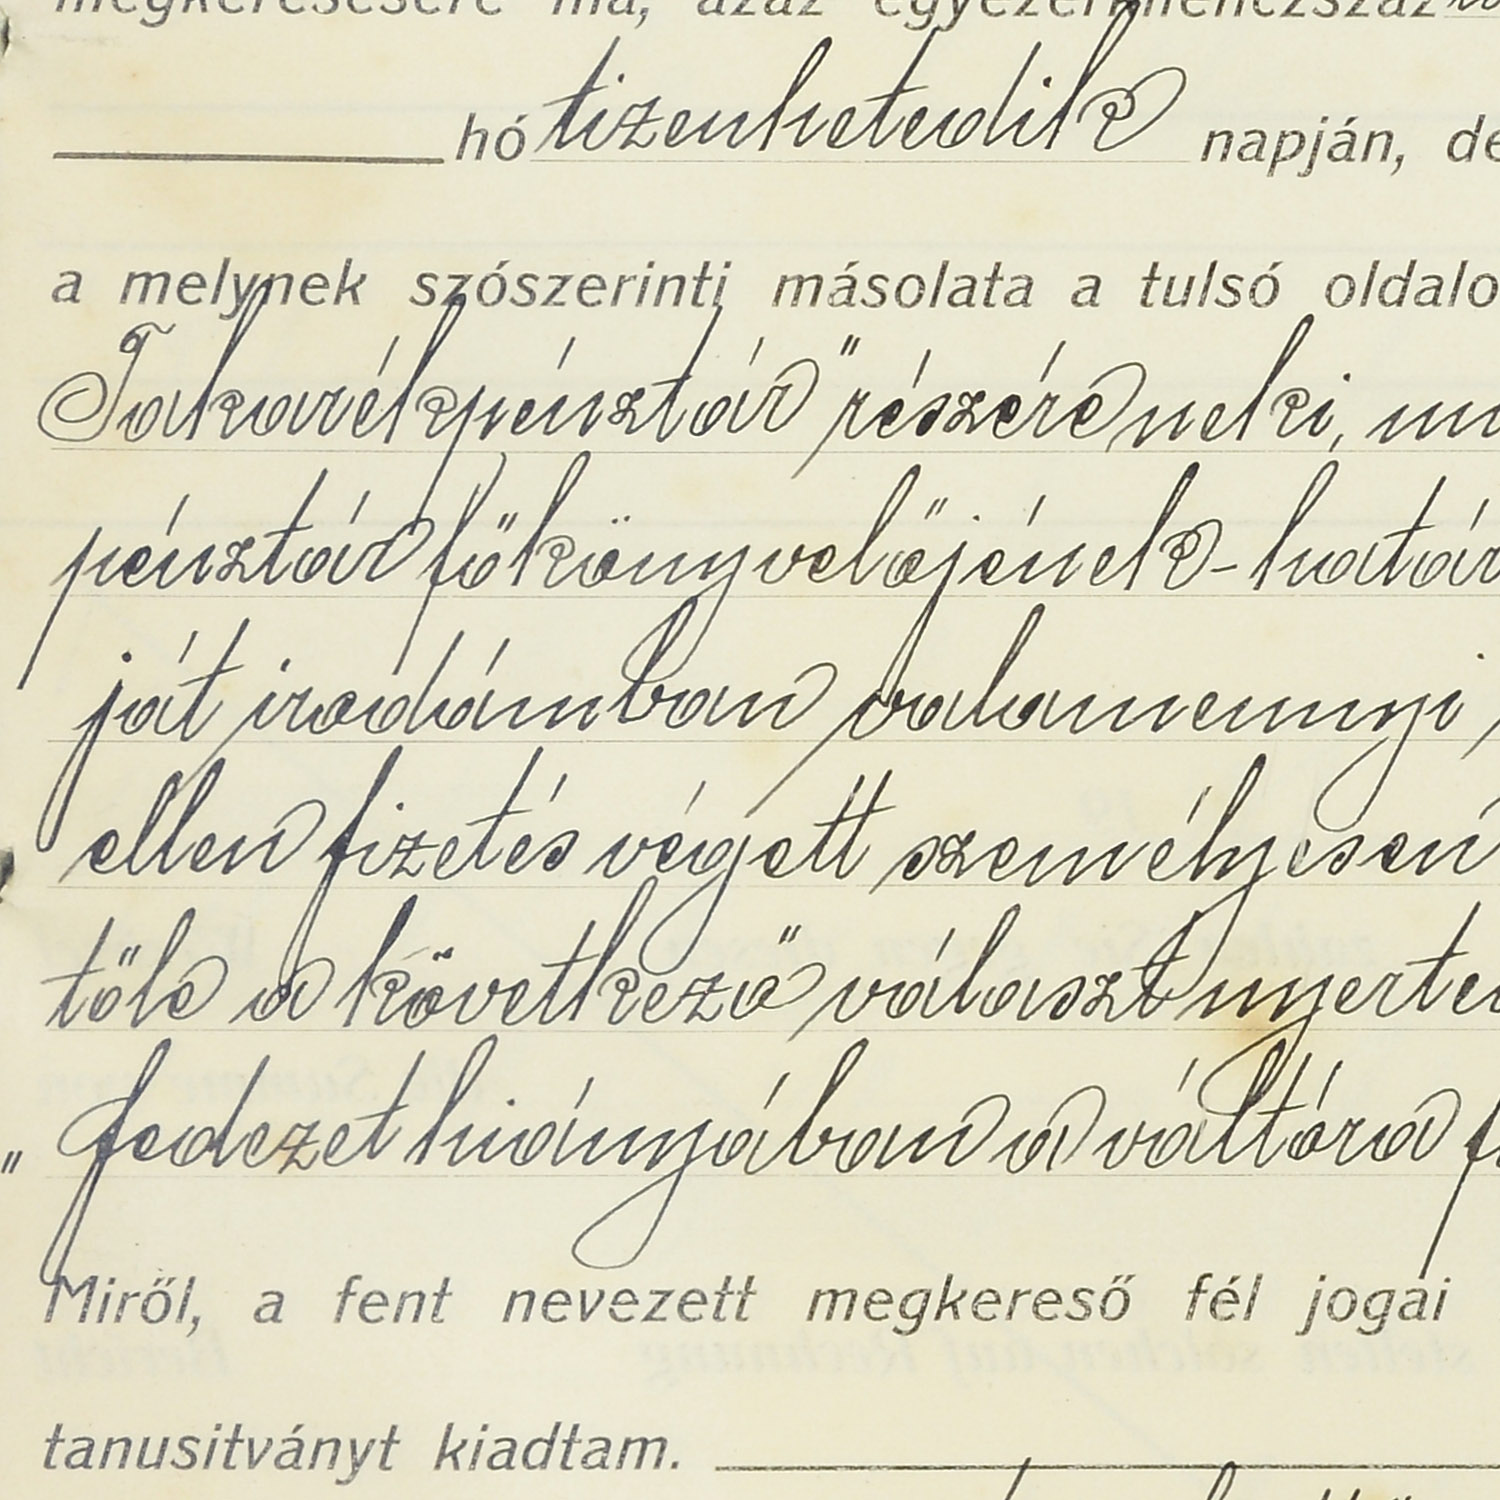 megkeresésére ma, azaz egyezerkilenczszáz
hó tizenhetedik napján, de
a melynek szószerinti másolata a tulsó oldalo
Takarékpénztár" részére neki, mi
pénztár főkönyvelőjének - határ
ját irodámban valamennyi
ellen fizetés végett személyesen
tőle a következő választ nyerte
„ fedezet hiányában a váltóra f
Miről, a fent nevezett megkereső fél jogai
tanusitványt kiadtam.